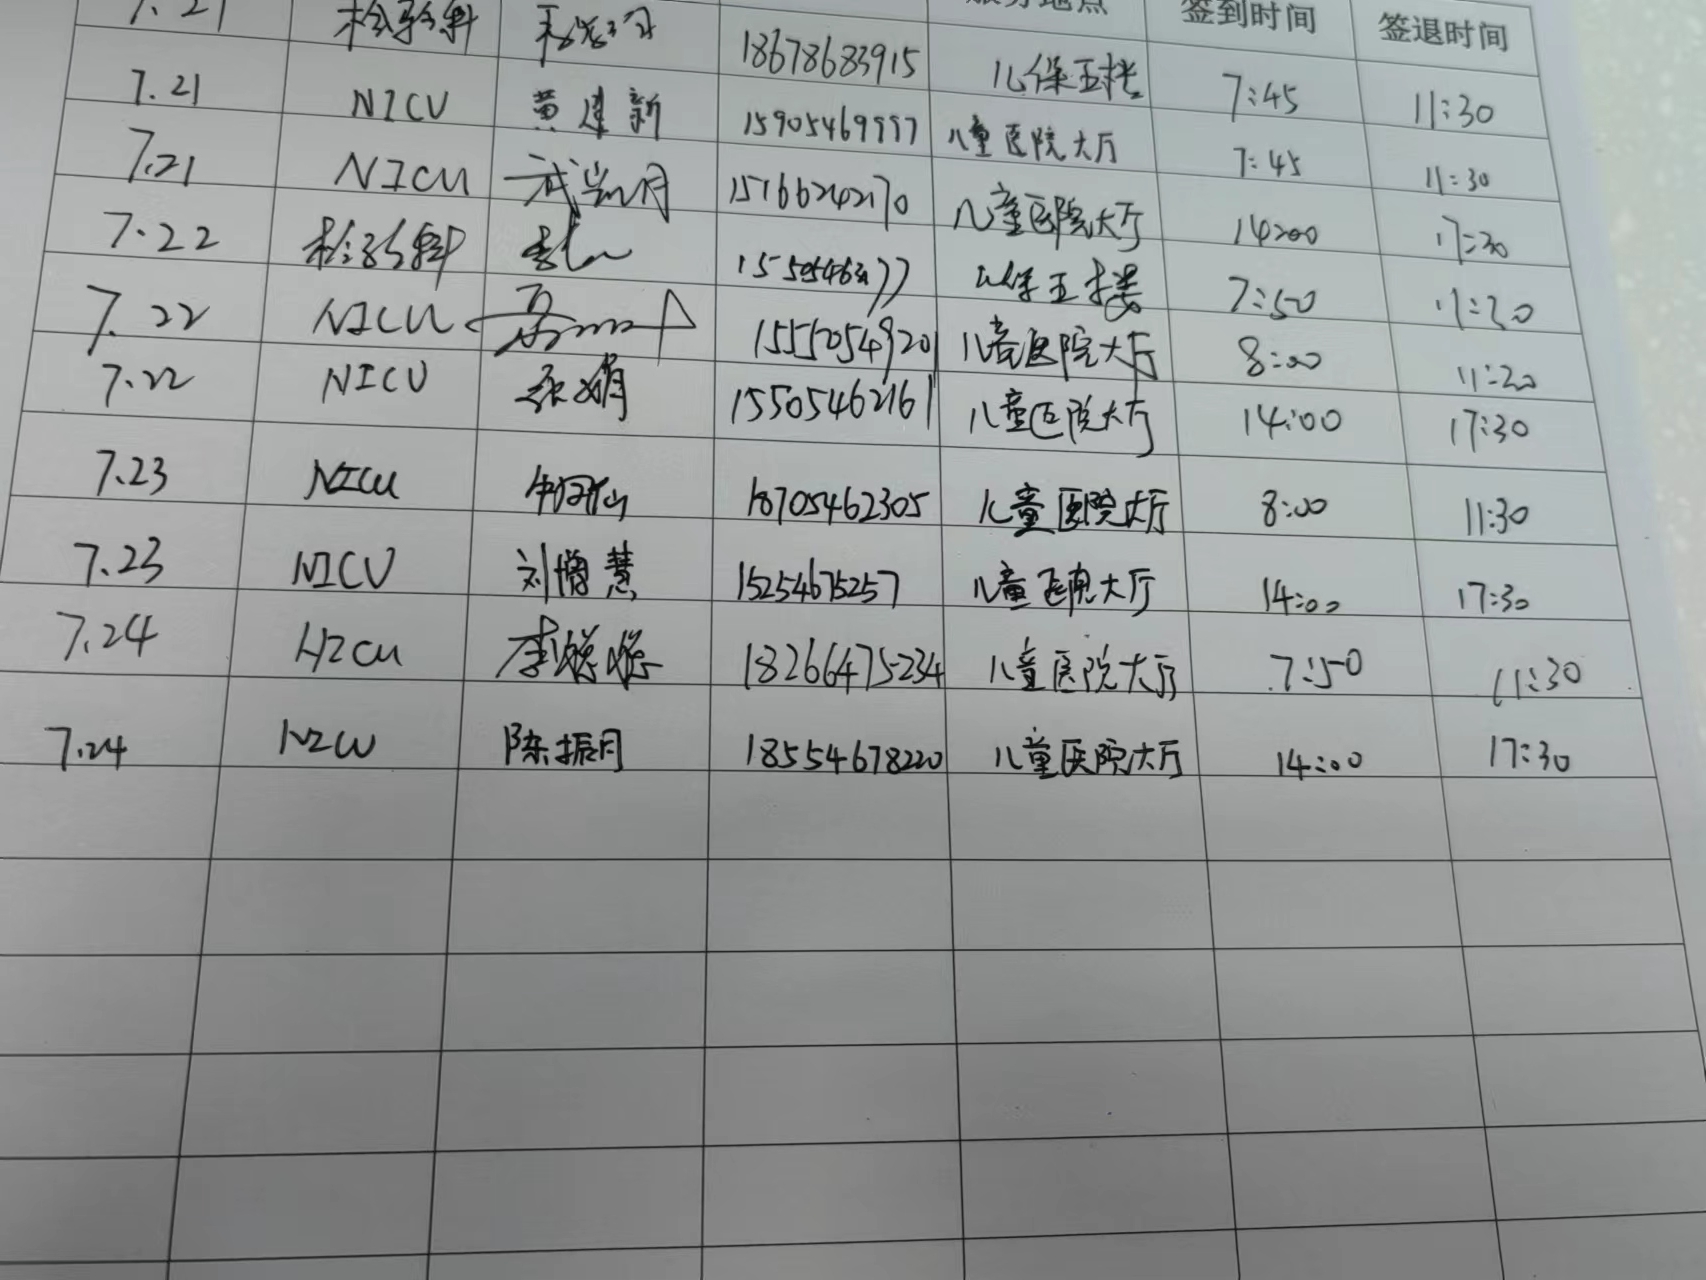 签到时间 签退时间
7.21 检验科 18678683915 儿保五楼 7:45 11:30
7.21 NICU 黄建新 15905469997 儿童医院大厅 7:45 11:30
7.21 NICU 15166242170 儿童医院大厅 14:00 17:30
7.22 检验科 儿保五楼 7:50 11:30
7.22 NICU 儿童医院大厅 8:00 11:20
7.22 NICU 张娟 15505462161 儿童医院大厅 14:00 17:30
7.23 NICU 18705462305 儿童医院大厅 8:00 11:30
7.23 NICU 刘增慧 15254675257 儿童医院大厅 14:00 17:30
7.24 NICU 18266475234 儿童医院大厅 7:50 11:30
7.24 NICU 陈振月 18554678220 儿童医院大厅 14:00 17:30